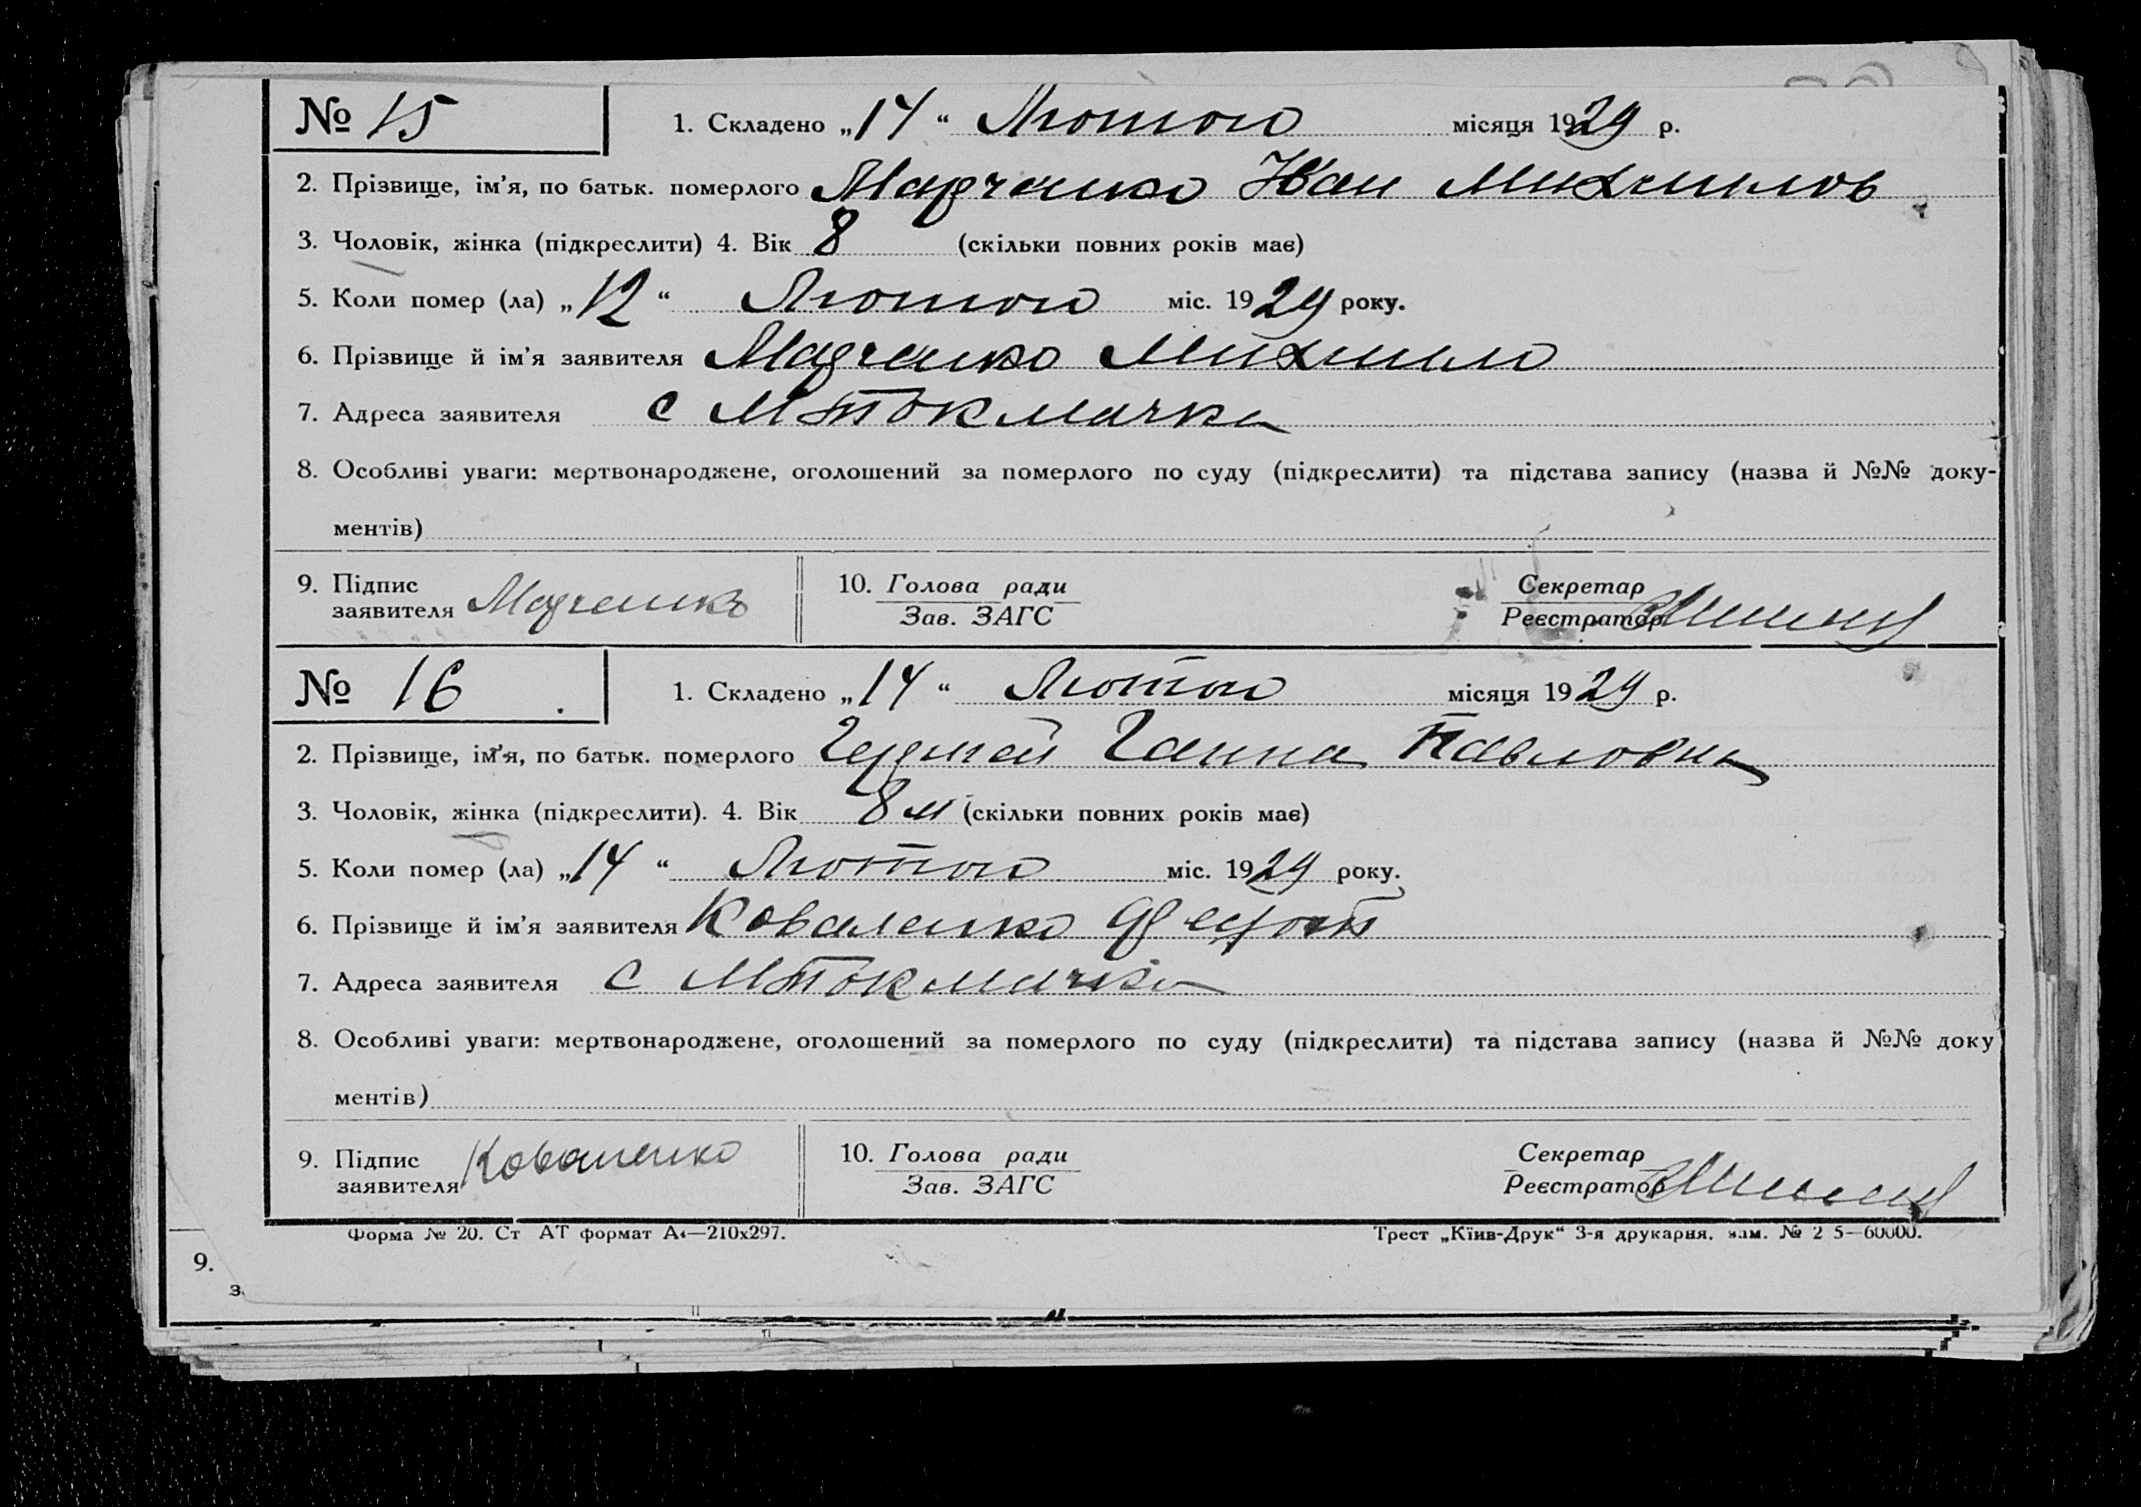 № 15 1. Складено „14“ Лютого місяця 1929 р.
2. Прізвище, ім'я, по батьк. померлого Марченко Іван Михайлов
3. Чоловік, жінка (підкреслити) 4. Вік 8 (скільки повних років має)
5. Коли помер (ла) „12“ Лютого міс. 1929 року.
6. Прізвище й ім'я заявителя Марченко Михаило
7. Адреса заявителя с МТокмачка
8. Особливі уваги: мертвонароджене, оголошений за померлого по суду (підкреслити) та підстава запису (назва й №№ доку-
ментів)
9. Підпис заявителя Марченко 10. Голова ради Зав. ЗАГС Секретар Реєстратор
№ 16 1. Складено „14“ Лютого місяця 1929 р.
2. Прізвище, ім'я, по батьк. померлого Ганна Павловна
3. Чоловік, жінка (підкреслити). 4. Вік 8 м (скільки повних років має)
5. Коли помер (ла) „14“ Лютого міс. 1929 року.
6. Прізвище й ім'я заявителя Коваленко
7. Адреса заявителя с МТокмачка
8. Особливі уваги: мертвонароджене, оголошений за померлого по суду (підкреслити) та підстава запису (назва й №№ доку
ментів)
9. Підпис заявителя Коваленко 10. Голова ради Зав. ЗАГС Секретар Реєстратор
Форма № 20. Ст АТ формат А4—210х297. Трест „Київ-Друк“ 3-я друкарня. зам. № 2 5—60000.
9.
з